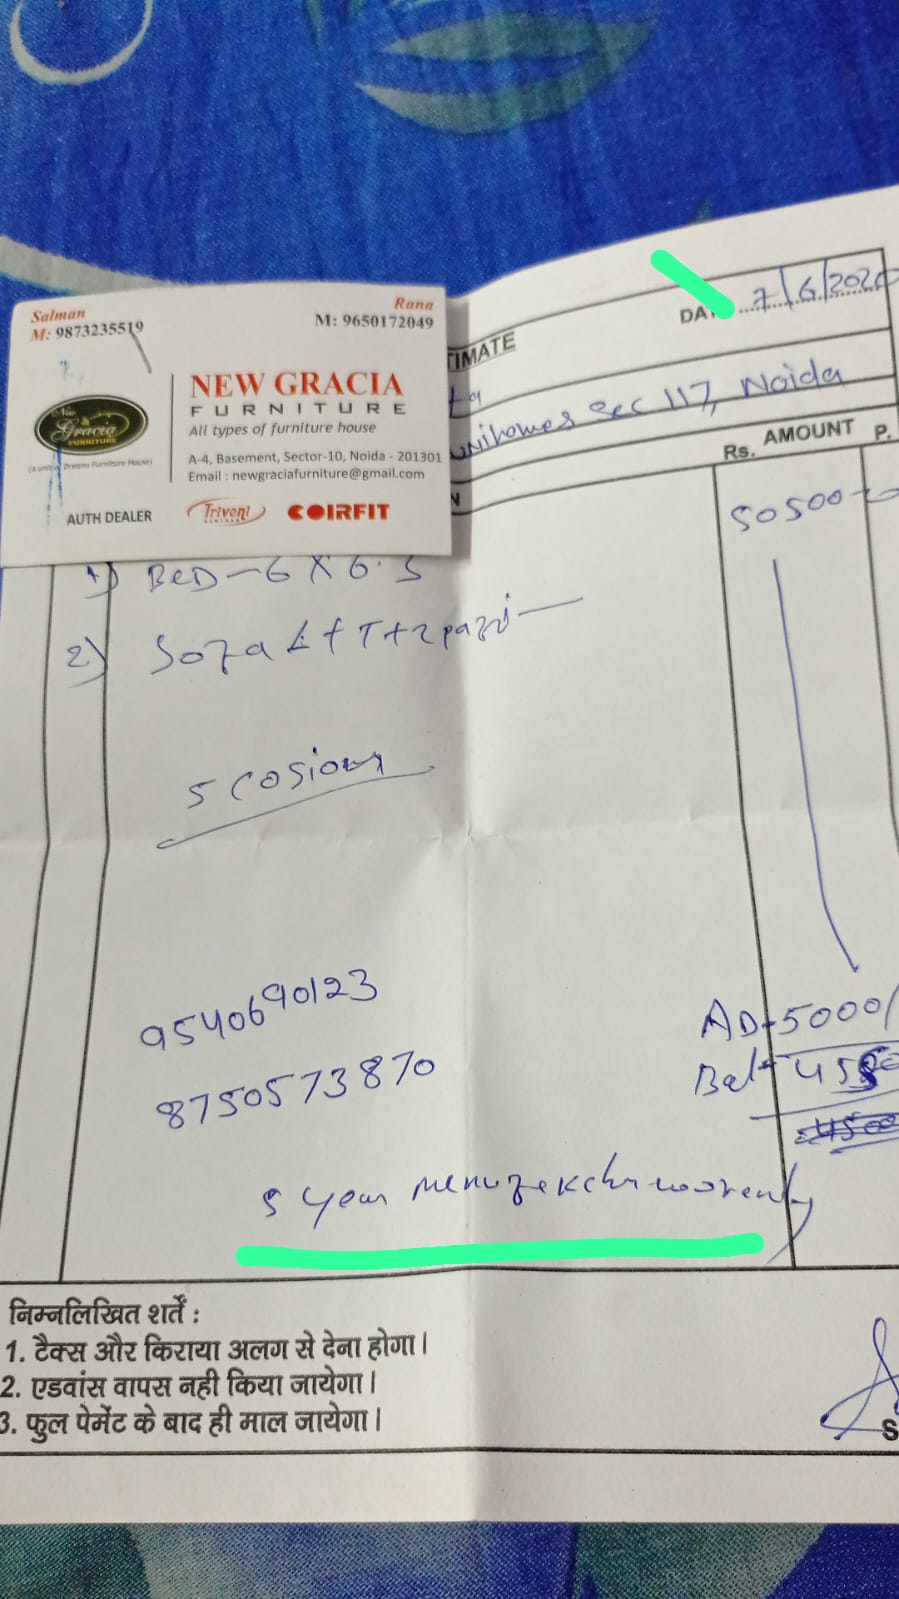 Salman
M: 9873235519
Rana
M: 9650172049
New
Gracia
FURNITURE
(A unit of Dreams Furniture House)
NEW GRACIA
FURNITURE
All types of furniture house
A-4, Basement, Sector-10, Noida - 201301
Email : newgraciafurniture@gmail.com
AUTH DEALER
Trivoni
COIRFIT
TIMATE
DAT 7/6/2020
unihomes Sec 117, Noida
N
Rs. AMOUNT P.
50500
1) BED-6 X 6.5
2) Sofa
5 Cosions
9540690123
AD-5000/
8750573870
Bal-
5 year
निम्नलिखित शर्तें :
1. टैक्स और किराया अलग से देना होगा।
2. एडवांस वापस नही किया जायेगा।
3. फुल पेमेंट के बाद ही माल जायेगा।
S